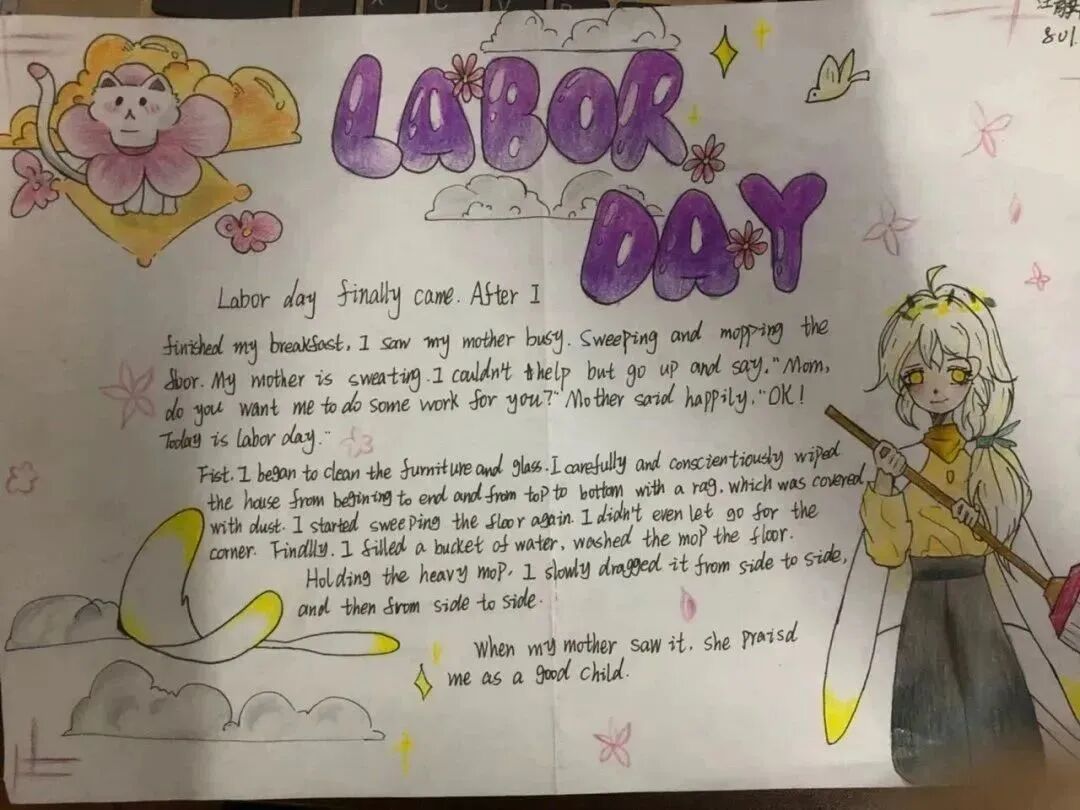 LABOR
DAY
801.
Labor day finally came. After I
finished my breakfast, I saw my mother busy. Sweeping and mopping the
floor. My mother is sweating. I couldn't help but go up and say, "Mom,
do you want me to do some work for you?" Mother said happily, "OK!
Today is labor day."
Fist, I began to clean the furniture and glass. I carefully and conscientiously wiped
the house from begining to end and from top to bottom with a rag, which was covered
with dust. I started sweeping the floor again. I didn't even let go for the
corner. Findlly, I filled a bucket of water, washed the mop the floor.
Holding the heavy mop, I slowly dragged it from side to side,
and then from side to side.
When my mother saw it, she praisd
me as a good child.